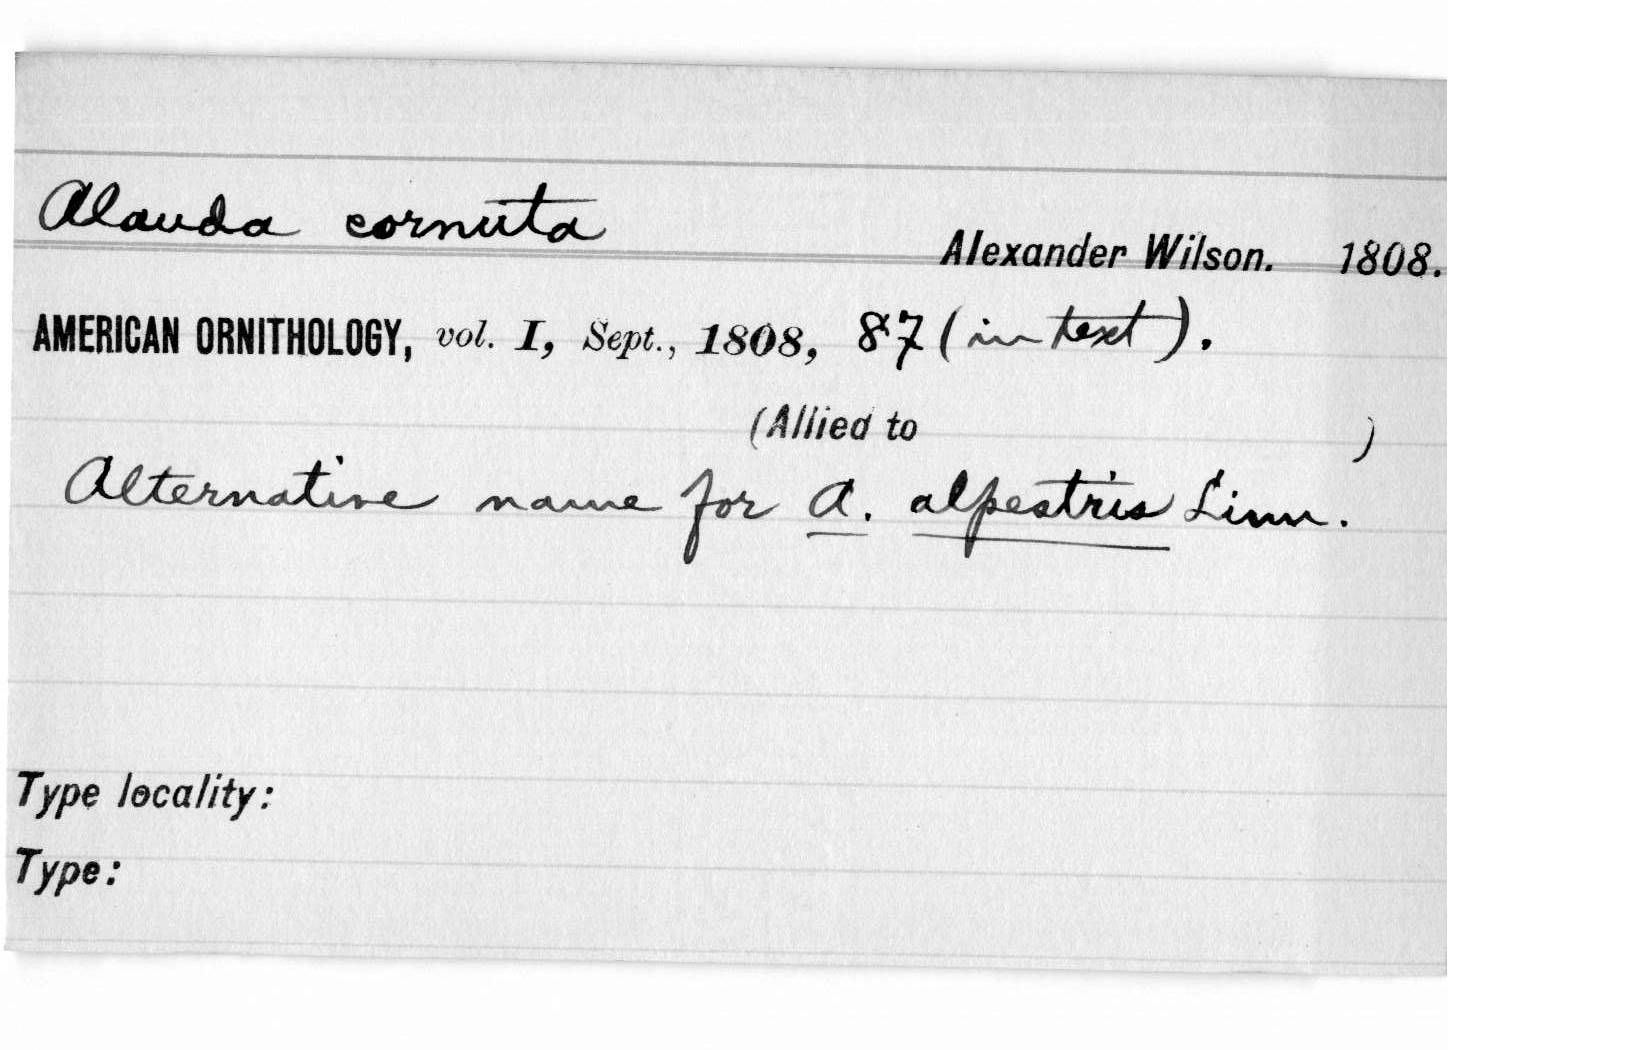 Alauda cornuta
Alexander Wilson. 1808.
AMERICAN ORNITHOLOGY, vol. I, Sept., 1808, 87 (in text).
(Allied to )
Alternative name for A. alpestris Linn.
Type locality:
Type: